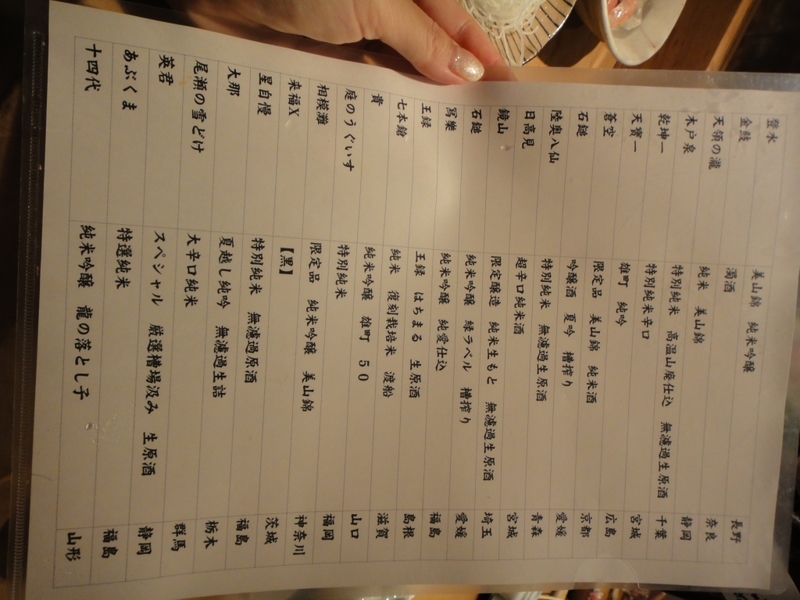 登水 美山錦 純米吟醸 長野
金鼓 濁酒 奈良
天領の瀧 純米 美山錦 静岡
木戸泉 特別純米 高温山廃仕込 無濾過生原酒 千葉
乾坤一 特別純米辛口 宮城
天寶一 雄町 純吟 広島
蒼空 限定品 美山錦 純米酒 京都
石鎚 吟醸酒 夏吟 槽搾り 愛媛
陸奥八仙 特別純米 無濾過生原酒 青森
日高見 超辛口純米酒 宮城
鏡山 限定醸造 純米生もと 無濾過生原酒 埼玉
石鎚 純米吟醸 緑ラベル 槽搾り 愛媛
寫樂 純米吟醸 純愛仕込 福島
王録 王録 はちまる 生原酒 島根
七本鎗 純米 復刻栽培米 渡船 滋賀
貴 純米吟醸 雄町 50 山口
庭のうぐいす 特別純米 福岡
相模灘 限定品 純米吟醸 美山錦 神奈川
来福X 【黒】 茨城
星自慢 特別純米 無濾過生原酒 福島
大那 夏越し純吟 無濾過生詰 栃木
尾瀬の雪どけ 大辛口純米 群馬
英君 スペシャル 厳選槽場汲み 生原酒 静岡
あぶくま 特選純米 福島
十四代 純米吟醸 龍の落とし子 山形